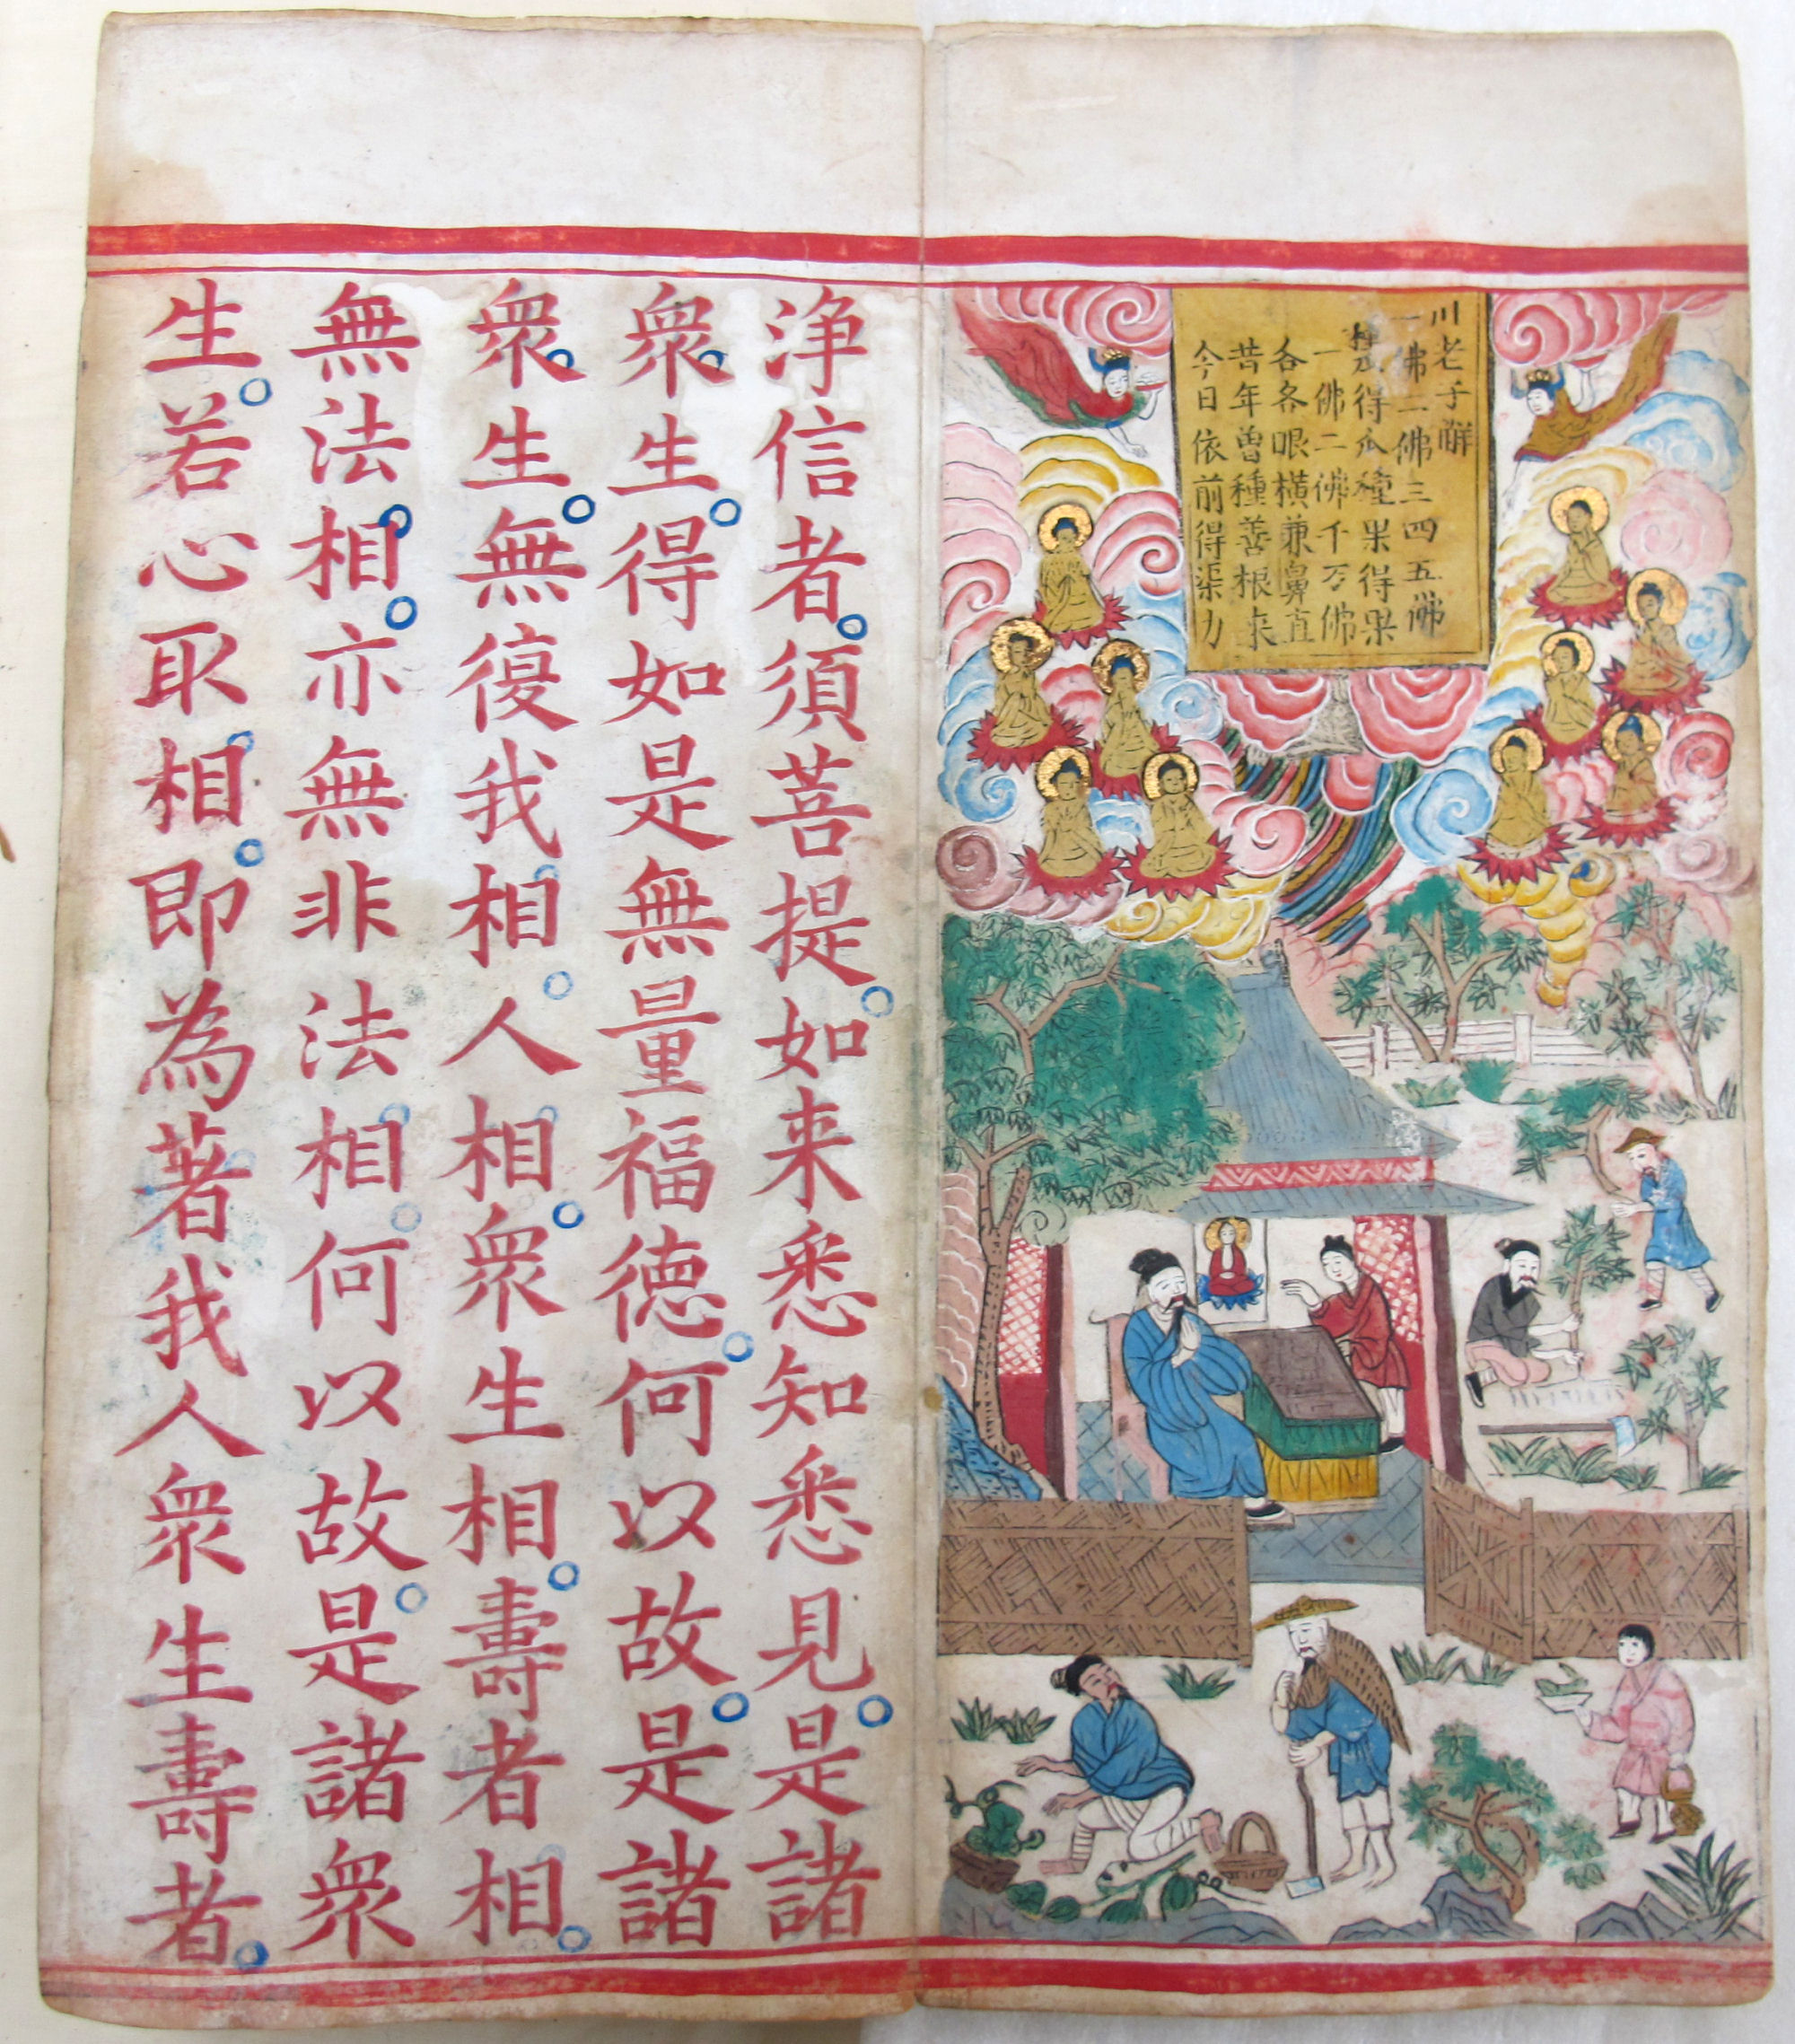 川老子觧
一佛二佛三四五佛
種瓜得瓜種果得果
一佛二佛千万佛
各各眼橫兼鼻直
昔年曾種善根来
今日依前得渠力
浄信者。須菩提。如来悉知悉見。是諸
衆生。得如是無量福徳。何以故。是諸
衆生。無復我相。人相。衆生相。壽者相。
無法相。亦無非法相。何以故。是諸衆
生。若心取相。即為著我人衆生壽者。